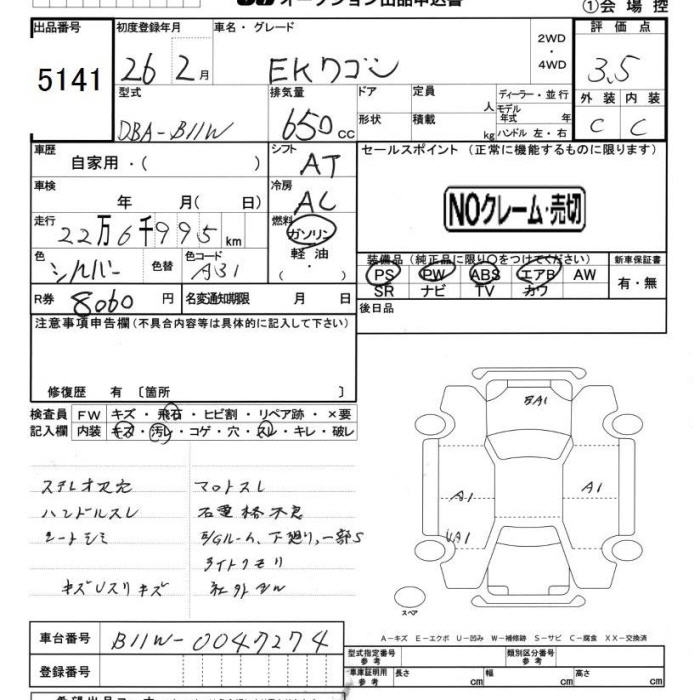 オークション出品申込書
①会場控
出品番号
5141
初度登録年月
26 2月
車名・グレード
EKワゴン
2WD
・
4WD
評価点
3.5
外装 内装
C C
型式
DBA-B11W
排気量
650cc
ドア
形状
定員
人
積載
kg
ディーラー・並行
モデル年式 年
ハンドル 左・右
車歴
自家用・( )
シフト
AT
セールスポイント (正常に機能するものに限ります)
NOクレーム・売切
車検
年 月( 日)
冷房
AC
走行
22万6千995km
燃料
ガソリン
軽油
・
色
シルバー
色替
色コード
A31
装備品(純正品に限り○をつけてください)
PS PW ABS エアB AW
SR ナビ TV カワ
新車保証書
有・無
R券
8060円
名変通知期限 月 日
後日品
注意事項申告欄(不具合内容等は具体的に記入して下さい)
修復歴 有 〔箇所 〕
検査員記入欄
FW キズ・飛石・ヒビ割・リペア跡・×要
内装 キズ・汚レ・コゲ・穴・スレ・キレ・破レ
ステレオ欠穴
ハンドルスレ
シートシミ
キズUスリキズ
マットスレ
E/Gルーム、下廻り、一部S
ライトクモリ
A1
A1
UA1
スペア
A−キズ E−エクボ U−凹み W−補修跡 S−サビ C−腐食 XX−交換済
車台番号
B11W-0047274
登録番号
型式指定番号
参考
類別区分番号
参考
車庫証明用
参考
長さ cm
幅 cm
高さ cm